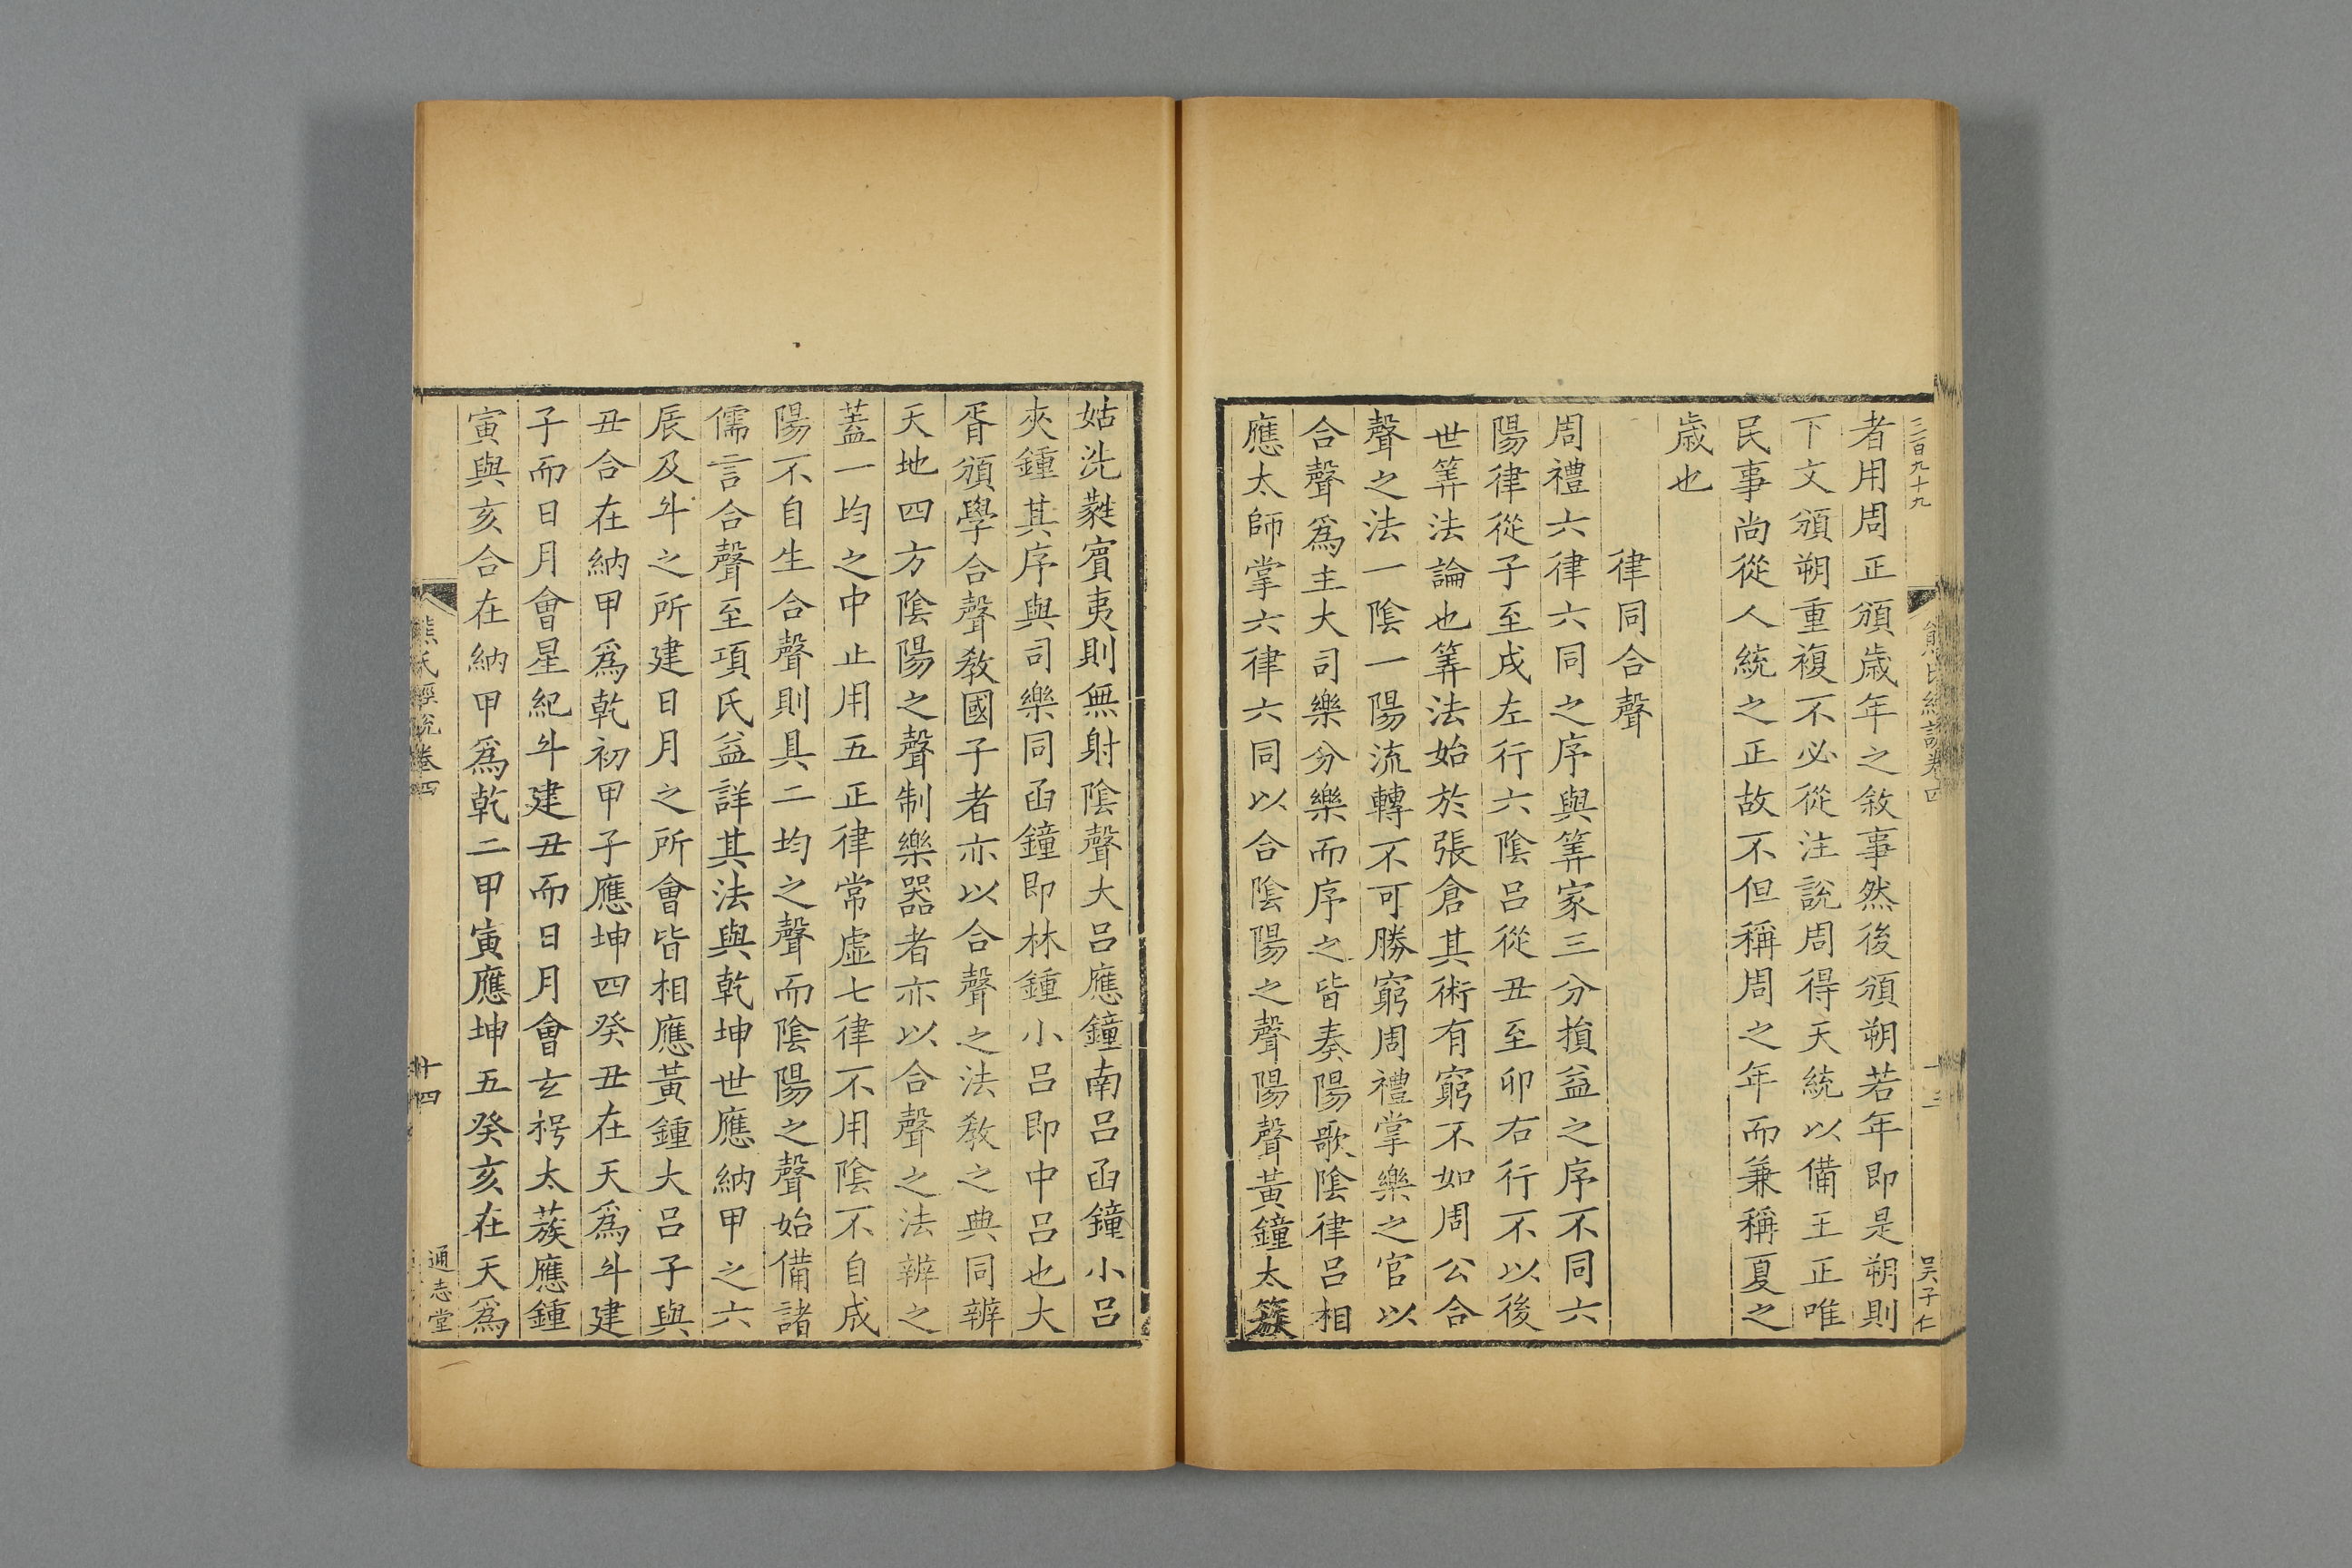 三百九十九
吴子仁
者用周正頒歳年之敘事然後頒朔若年即是朔則
下文頒朔重複不必從注說周得天統以備王正唯
民事尚從人統之正故不但稱周之年而兼稱夏之
歳也
律同合聲
周禮六律六同之序與筭家三分損益之序不同六
陽律從子至戌左行六陰呂從丑至卯右行不以後
世筭法論也筭法始於張倉其術有窮不如周公合
聲之法一陰一陽流轉不可勝窮周禮掌樂之官以
合聲爲主大司樂分樂而序之皆奏陽歌陰律呂相
應太師掌六律六同以合陰陽之聲陽聲黃鐘太簇
姑洗蕤賓夷則無射陰聲大呂應鐘南呂函鐘小呂
夾鍾其序與司樂同函鐘即林鍾小呂即中呂也大
胥頒學合聲教國子者亦以合聲之法教之典同辨
天地四方陰陽之聲制樂器者亦以合聲之法辨之
蓋一均之中止用五正律常虛七律不用陰不自成
陽不自生合聲則具二均之聲而陰陽之聲始備諸
儒言合聲至項氏益詳其法與乾坤世應納甲之六
辰及斗之所建日月之所會皆相應黃鍾大呂子與
丑合在納甲爲乾初甲子應坤四癸丑在天爲斗建
子而日月會星紀斗建丑而日月會玄枵太蔟應鍾
寅與亥合在納甲爲乾二甲寅應坤五癸亥在天爲
熊氏經說卷四
十四
通志堂